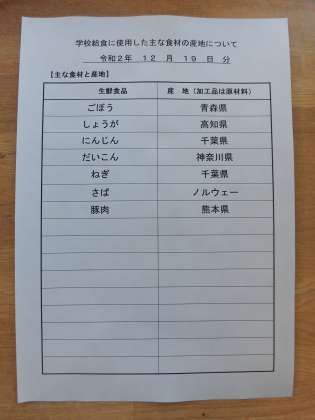 学校給食に使用した主な食材の産地について
令和2年 12 月 19 日 分
【主な食材と産地】
生鮮食品 産 地（加工品は原材料）
ごぼう 青森県
しょうが 高知県
にんじん 千葉県
だいこん 神奈川県
ねぎ 千葉県
さば ノルウェー
豚肉 熊本県